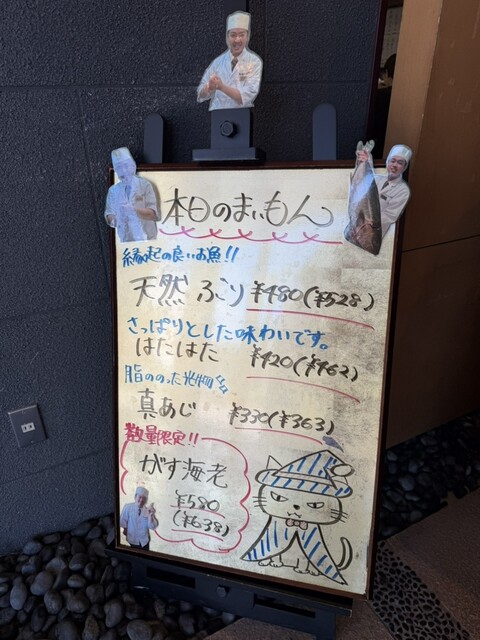 本日のまいもん
縁起の良いお魚!!
天然 ふくり ¥480(¥528)
さっぱりとした味わいです。
はたはた ¥420(¥462)
脂ののった光物
真あじ ¥330(¥363)
数量限定!!
がす海老
¥580
(¥638)